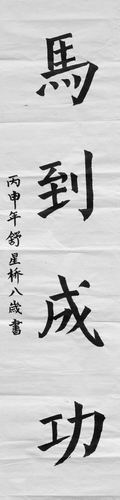 馬到成功
丙申年舒星桥八歲書